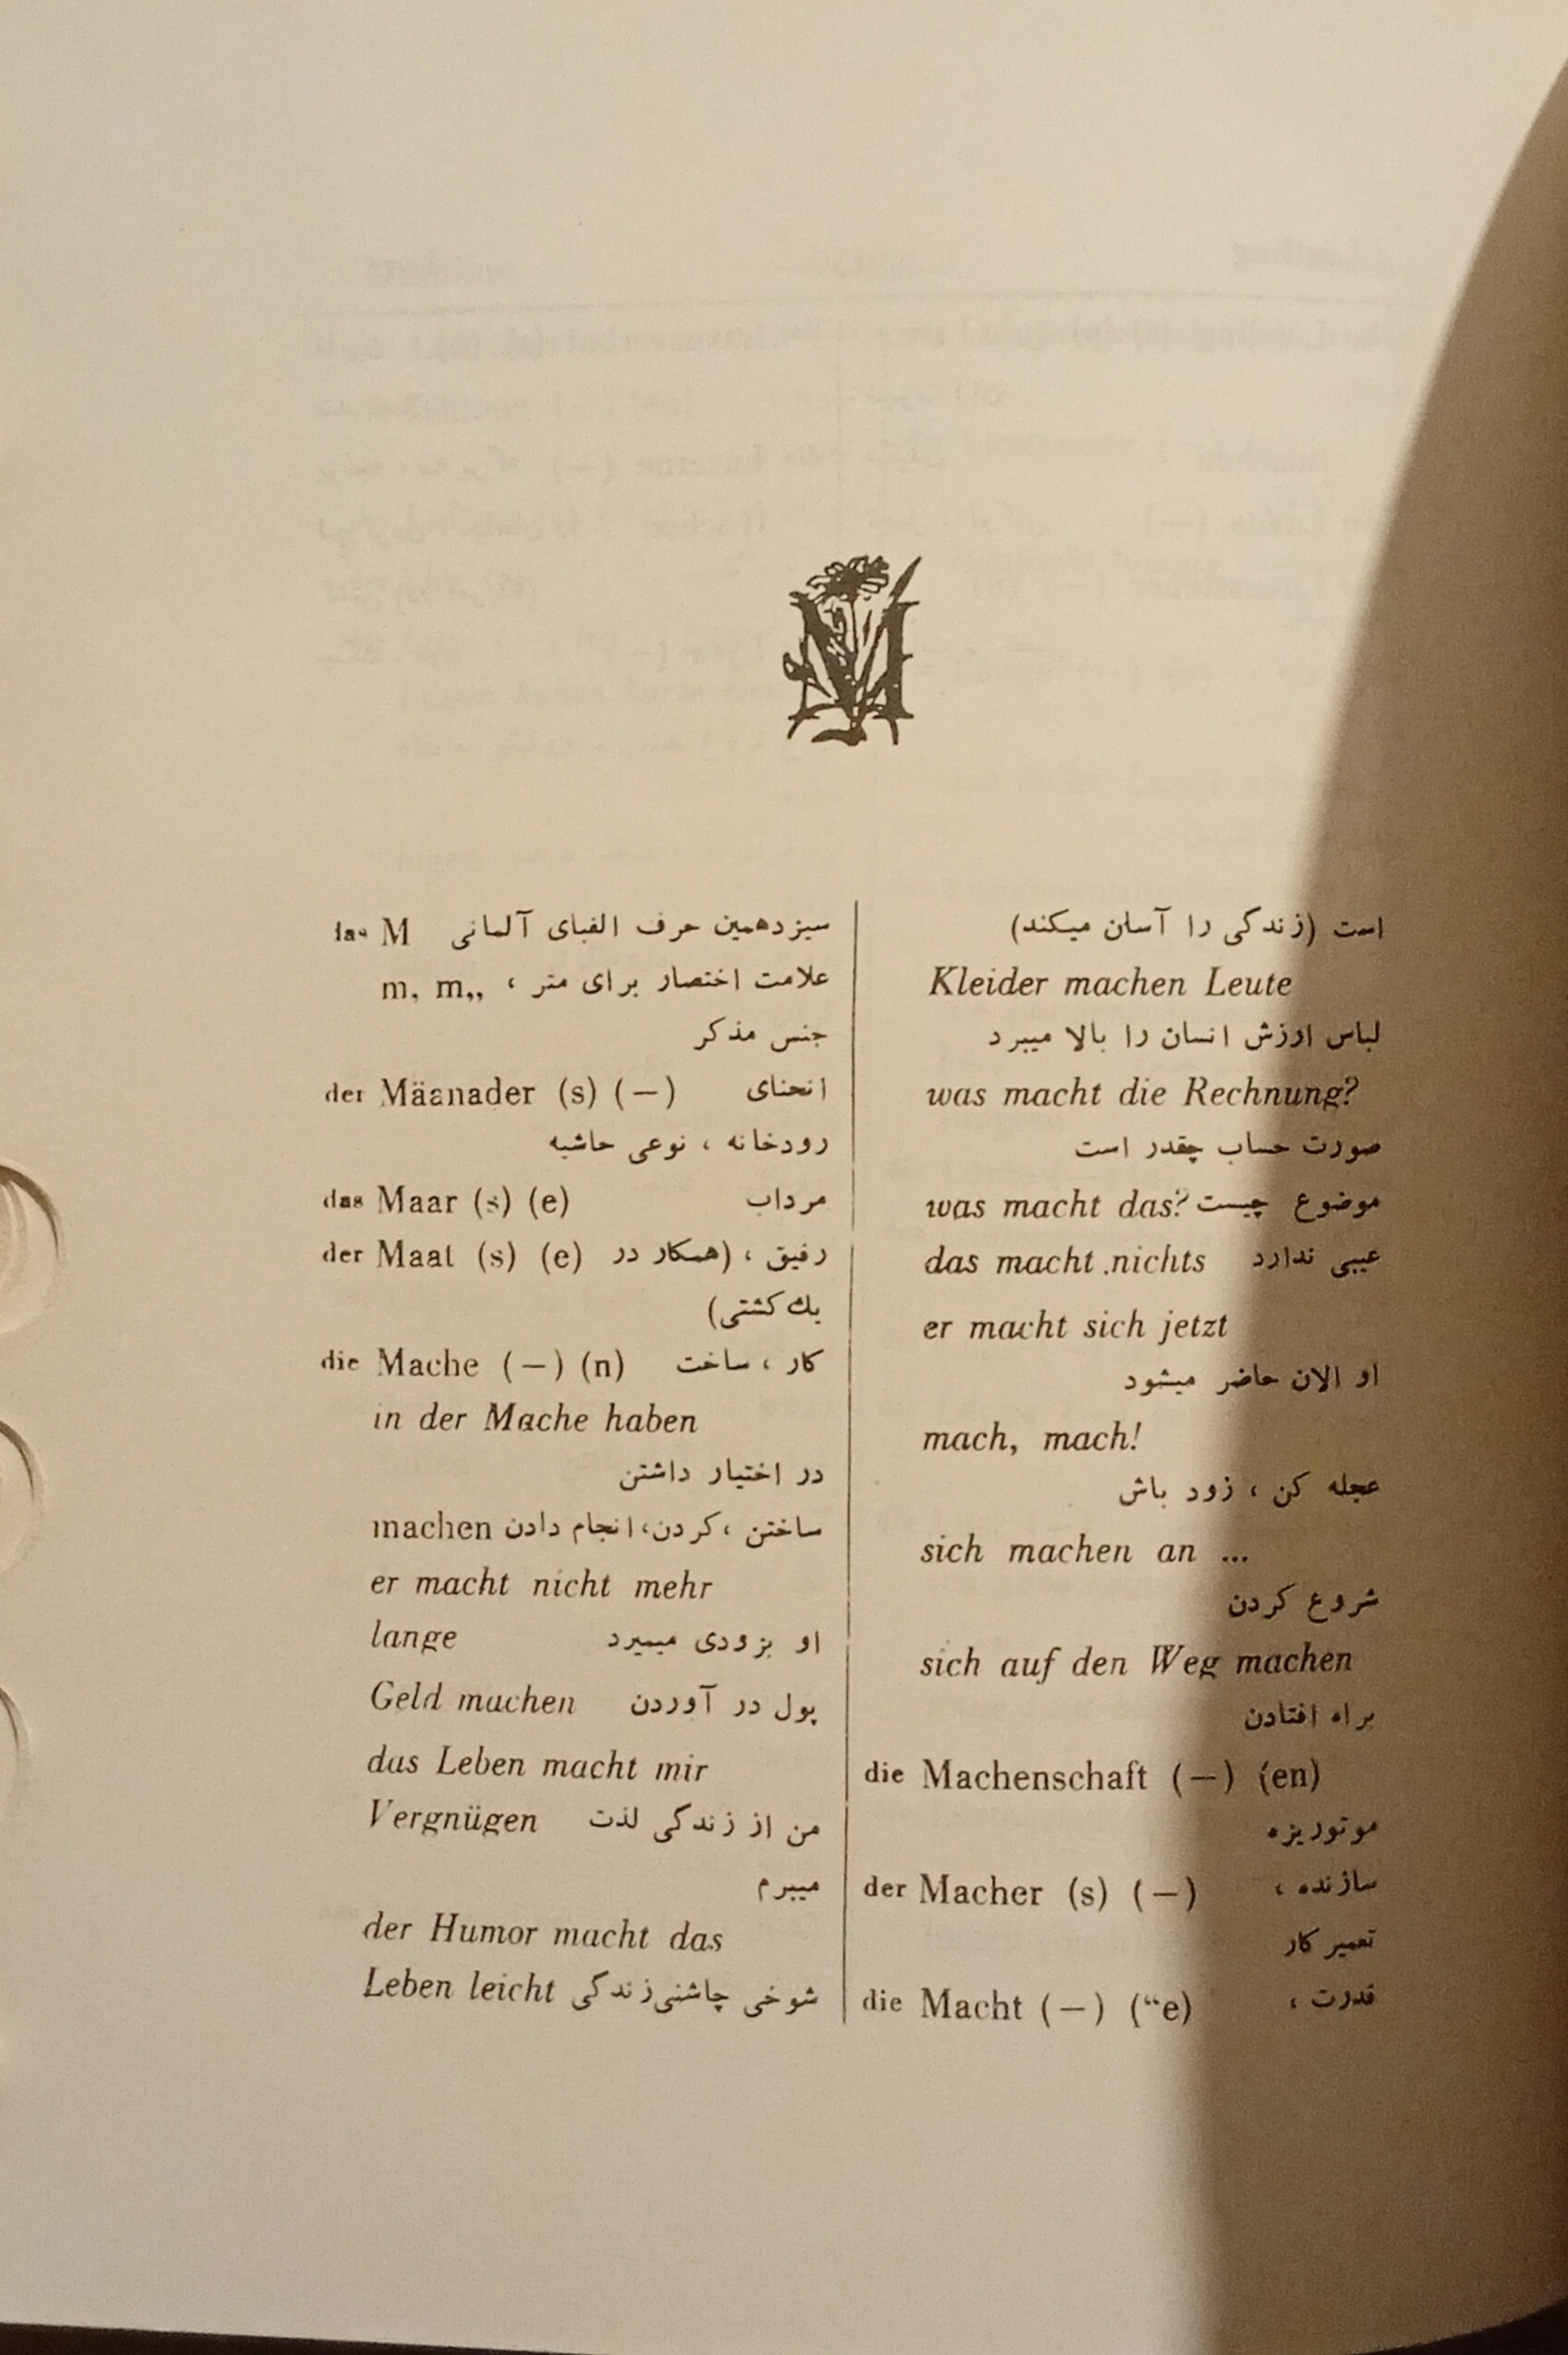 M
das M سیزدهمین حرف الفبای آلمانی
m, m,, علامت اختصار برای متر ،
جنس مذکر
der Mäanader (s) (—) انحنای
رودخانه ، نوعی حاشیه
das Maar (s) (e) مرداب
der Maat (s) (e) رفیق ، (همکار در
یك کشتی)
die Mache (—) (n) کار ، ساخت
in der Mache haben
در اختیار داشتن
machen ساختن ، کردن، انجام دادن
er macht nicht mehr
lange او بزودی میمیرد
Geld machen پول در آوردن
das Leben macht mir
Vergnügen من از زندگی لذت
میبرم
der Humor macht das
Leben leicht شوخی چاشنی زندگی
است (زندگی را آسان میکند)
Kleider machen Leute
لباس ارزش انسان را بالا میبرد
was macht die Rechnung?
صورت حساب چقدر است
was macht das? موضوع چیست
das macht .nichts عیبی ندارد
er macht sich jetzt
او الان حاضر میشود
mach, mach!
عجله کن ، زود باش
sich machen an ...
شروع کردن
sich auf den Weg machen
براه افتادن
die Machenschaft (—) (en)
موتوریزه
der Macher (s) (—) سازنده ،
تعمیر کار
die Macht (—) (“e) قدرت ،